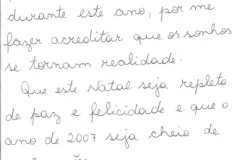 durante este ano, por me
fazer acreditar que os sonhos
se tornam realidade.
Que este Natal seja repleto
de paz e felicidade e que o
ano de 2007 seja cheio de